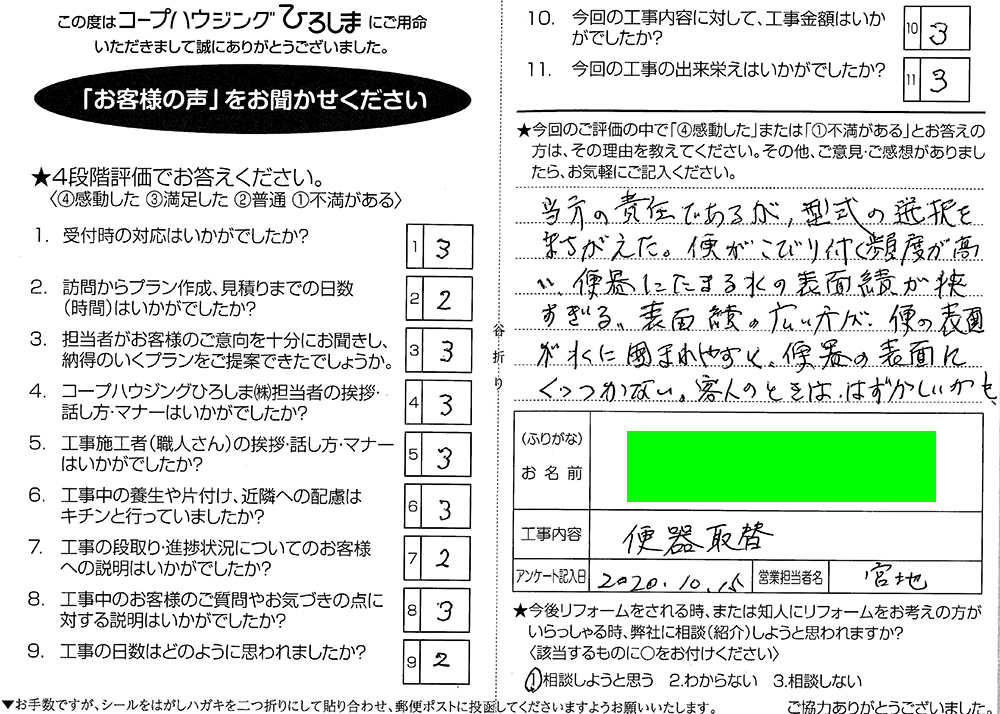 この度はコープハウジングひろしまにご用命
いただきまして誠にありがとうございました。
「お客様の声」をお聞かせください
★4段階評価でお答えください。
〈④感動した ③満足した ②普通 ①不満がある〉
1. 受付時の対応はいかがでしたか?
1 3
2. 訪問からプラン作成、見積りまでの日数
(時間)はいかがでしたか?
2 2
3. 担当者がお客様のご意向を十分にお聞きし、
納得のいくプランをご提案できたでしょうか。
3 3
4. コープハウジングひろしま㈱担当者の挨拶・
話し方・マナーはいかがでしたか?
4 3
5. 工事施工者(職人さん)の挨拶・話し方・マナー
はいかがでしたか?
5 3
6. 工事中の養生や片付け、近隣への配慮は
キチンと行っていましたか?
6 3
7. 工事の段取り・進捗状況についてのお客様
への説明はいかがでしたか?
7 2
8. 工事中のお客様のご質問やお気づきの点に
対する説明はいかがでしたか?
8 3
9. 工事の日数はどのように思われましたか?
9 2
▼お手数ですが、シールをはがしハガキを二つ折りにして貼り合わせ、郵便ポストに投函してくださいますようお願いいたします。
谷折り
10. 今回の工事内容に対して、工事金額はいか
がでしたか?
10 3
11. 今回の工事の出来栄えはいかがでしたか?
11 3
★今回のご評価の中で「④感動した」または「①不満がある」とお答えの
方は、その理由を教えてください。その他、ご意見・ご感想がありまし
たら、お気軽にご記入ください。
当方の責任であるが、型式の選択を
まちがえた。便がこびり付く頻度が高
い、便器にたまる水の表面績が狭
すぎる。表面績の広い方が、便の表面
が水に囲まれやすく、便器の表面に
くっつかない。客人のときは、はずかしいかも、
(ふりがな)
お名前
工事内容
便器取替
アンケート記入日
2020.10.15
営業担当者名
宮地
★今後リフォームをされる時、または知人にリフォームをお考えの方が
いらっしゃる時、弊社に相談(紹介)しようと思われますか?
〈該当するものに○をお付けください〉
①相談しようと思う 2.わからない 3.相談しない
ご協力ありがとうございました。